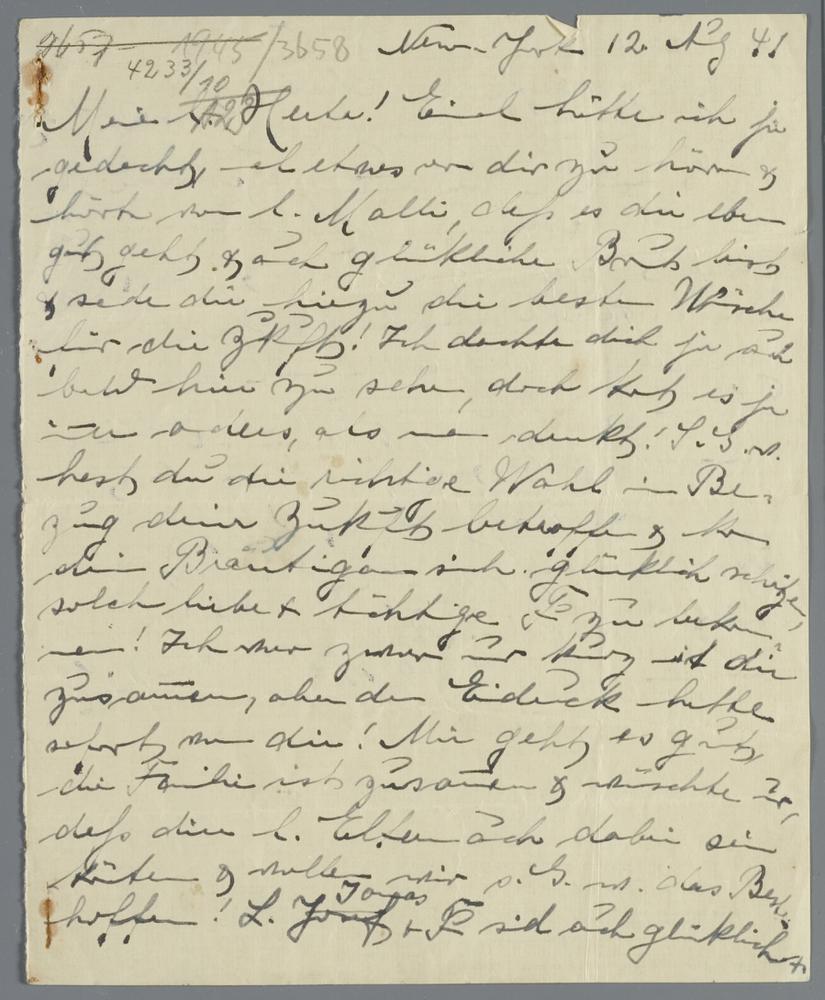 2657 1945/3658 New-York 12. Aug 41
4233/10
Meine l. Herta! Einel hätte ich ja
gedacht, etwas von dir zu hören &
hörte von l. Malli, daß es dir eben
gut geht & auch glückliche Braut bist
& sende dir hiezu die besten Wünsche
für die Zukunft! Ich dachte dich ja auch
bald hier zu sehen, doch kot es ja
immer anders, als man denkt! S. G. w.
hast du die richtige Wahl in Be-
zug deiner Zukunft betroffen & kann
dein Bräutigam sich glücklich schätzen,
solch liebe & tüchtige Fr zu bekom-
men! Ich war zwar nur kurz mit dir
zusammen, aber den Eindruck hatte
sofort von dir! Mir geht es gut,
die Familie ist zusammen & wünschte nur,
daß deine l. Eltern auch dabei sein
könten & wollen wir s. G. w. das Beste
hoffen! L. Jonas & Fr sind auch glücklich &